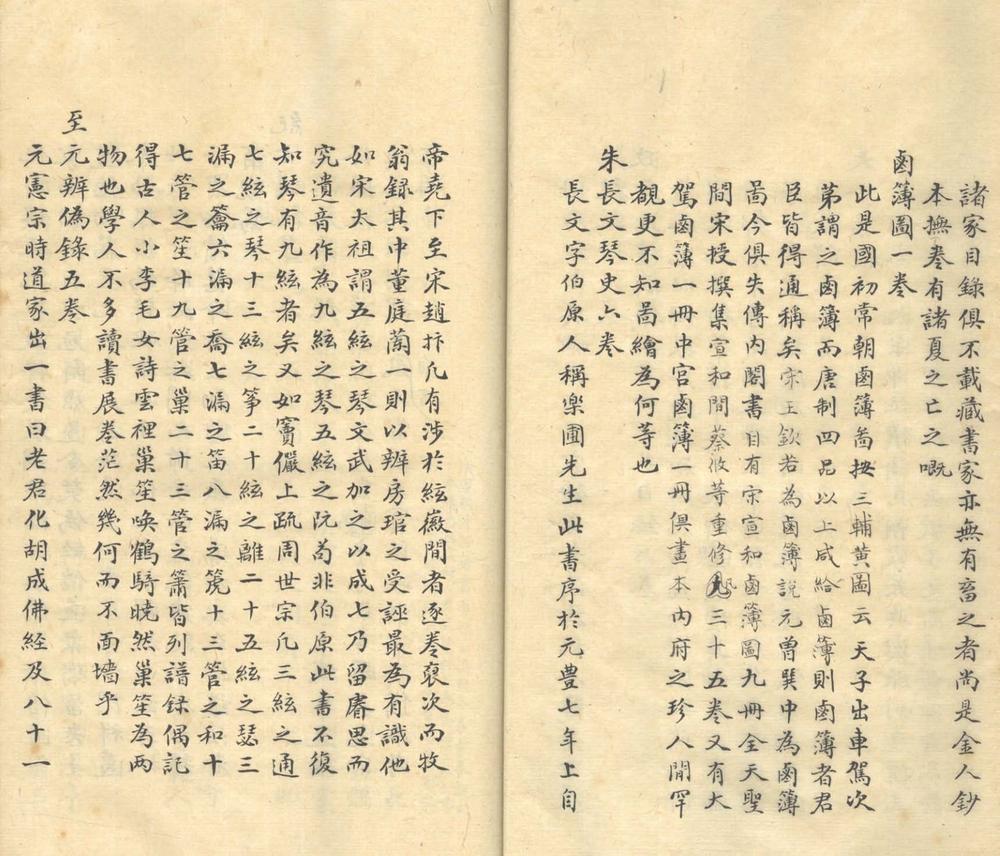 諸家目錄俱不載藏書家亦無有畜之者尚是金人鈔
本撫卷有諸夏之亡之嘅
鹵簿圖一卷
此是國初常朝鹵簿啚按三輔黃圖云天子出車駕次
第謂之鹵簿而唐制四品以上咸給鹵簿則鹵簿者君
臣皆得通稱矣宋王欽若為鹵簿說元曾巽申為鹵簿
啚今俱失傳內閣書目有宋宣和鹵簿圖九冊全天聖
間宋授撰集宣和間蔡攸等重修三十五卷又有大
駕鹵簿一冊中宮鹵簿一冊俱畫本內府之珍人間罕
覩更不知啚繪為何等也
朱長文琴史六卷
長文字伯原人稱樂圃先生此書序於元豊七年上自
帝堯下至宋趙抃凡有涉於絃徽間者逐卷裒次而牧
翁錄其中董庭蘭一則以辨房琯之受誣最為有識他
如宋太祖謂五絃之琴文武加之以成七乃留睿思而
究遺音作為九絃之琴五絃之阮苟非伯原此書不復
知琴有九絃者矣又如竇儼上疏周世宗凡三絃之通
七絃之琴十三絃之箏二十絃之離二十五絃之瑟三
漏之籥六漏之喬七漏之笛八漏之箎十三管之和十
七管之笙十九管之巢二十三管之簫皆列譜録偶記
得古人小李毛女詩雲裡巢笙喚鶴騎曉然巢笙為兩
物也學人不多讀書展卷茫然幾何而不面墻乎
至元辨偽錄五卷
元憲宗時道家出一書曰老君化胡成佛經及八十一